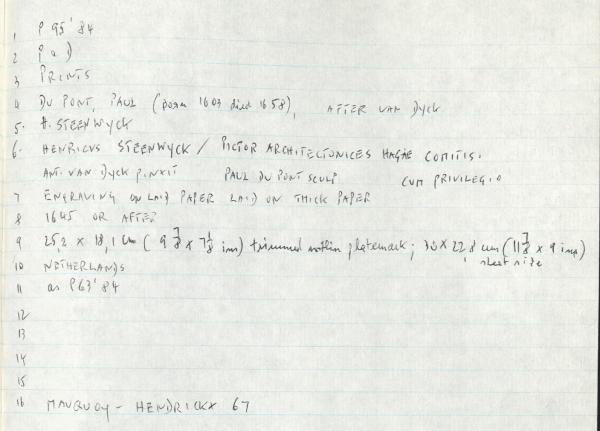 1 P 95'84
2 P a)
3 PRINTS
4 DU PONT, PAUL (born 1603 died 1658), AFTER VAN DYCK
5. H. STEENWYCK
6. HENRICVS STEENWYCK / PICTOR ARCHITECTONICES HAGAE COMITIS.
ANT. VAN DYCK PINXIT PAUL DU PONT SCULP. CUM PRIVILEGIO
7 ENGRAVING ON LAID PAPER LAID ON THICK PAPER
8 1645 OR AFTER
9 25,2 X 18,1 cm ( 9 7/8 X 7 1/8 ins) trimmed within platemark; 30 X 22,8 cm (11 7/8 x 9 ins)
sheet size
10 NETHERLANDS
11 as P63'84
12
13
14
15
16 MAUQUOY - HENDRICKX 67